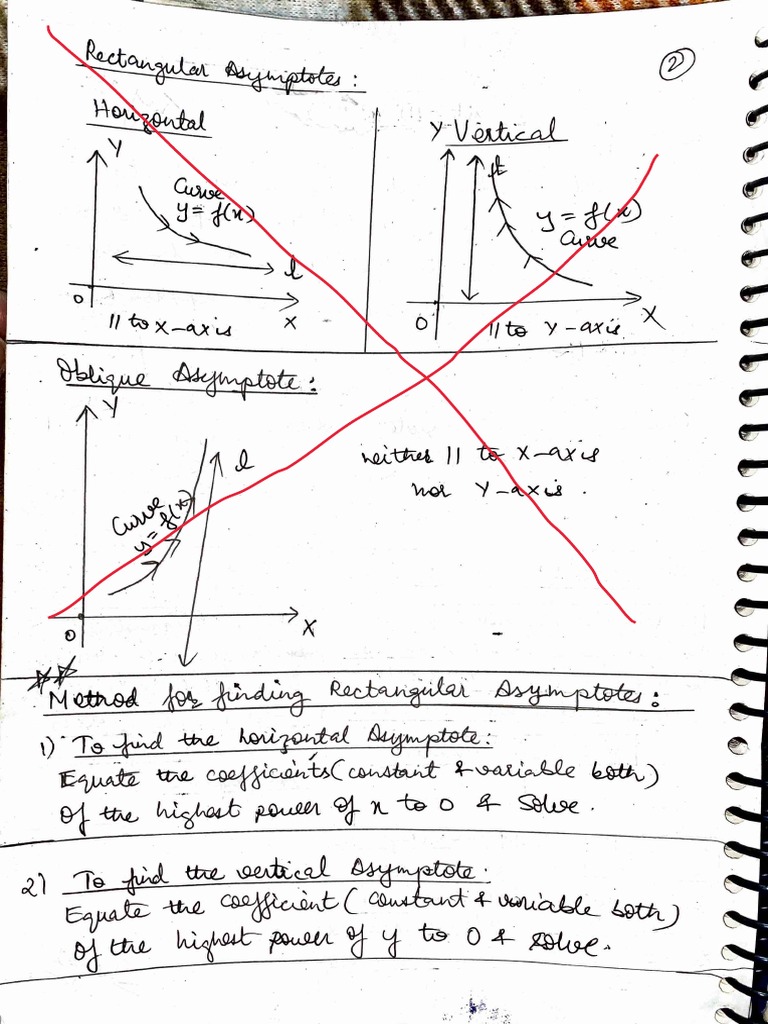 Rectangular Asymptotes:
2
Horizontal
Y
Curve
y = f(x)
l
O
X
|| to X-axis
Y Vertical
l
y = f(x)
Curve
O
X
|| to Y-axis
Oblique Asymptote:
Y
l
Curve
y = f(x)
O
X
neither || to X-axis
nor Y-axis.
Method for finding Rectangular Asymptotes:
1) To find the horizontal Asymptote:
Equate the coefficients (constant & variable both)
of the highest power of x to 0 & solve.
2) To find the vertical Asymptote.
Equate the coefficient (constant & variable both)
of the highest power of y to 0 & solve.